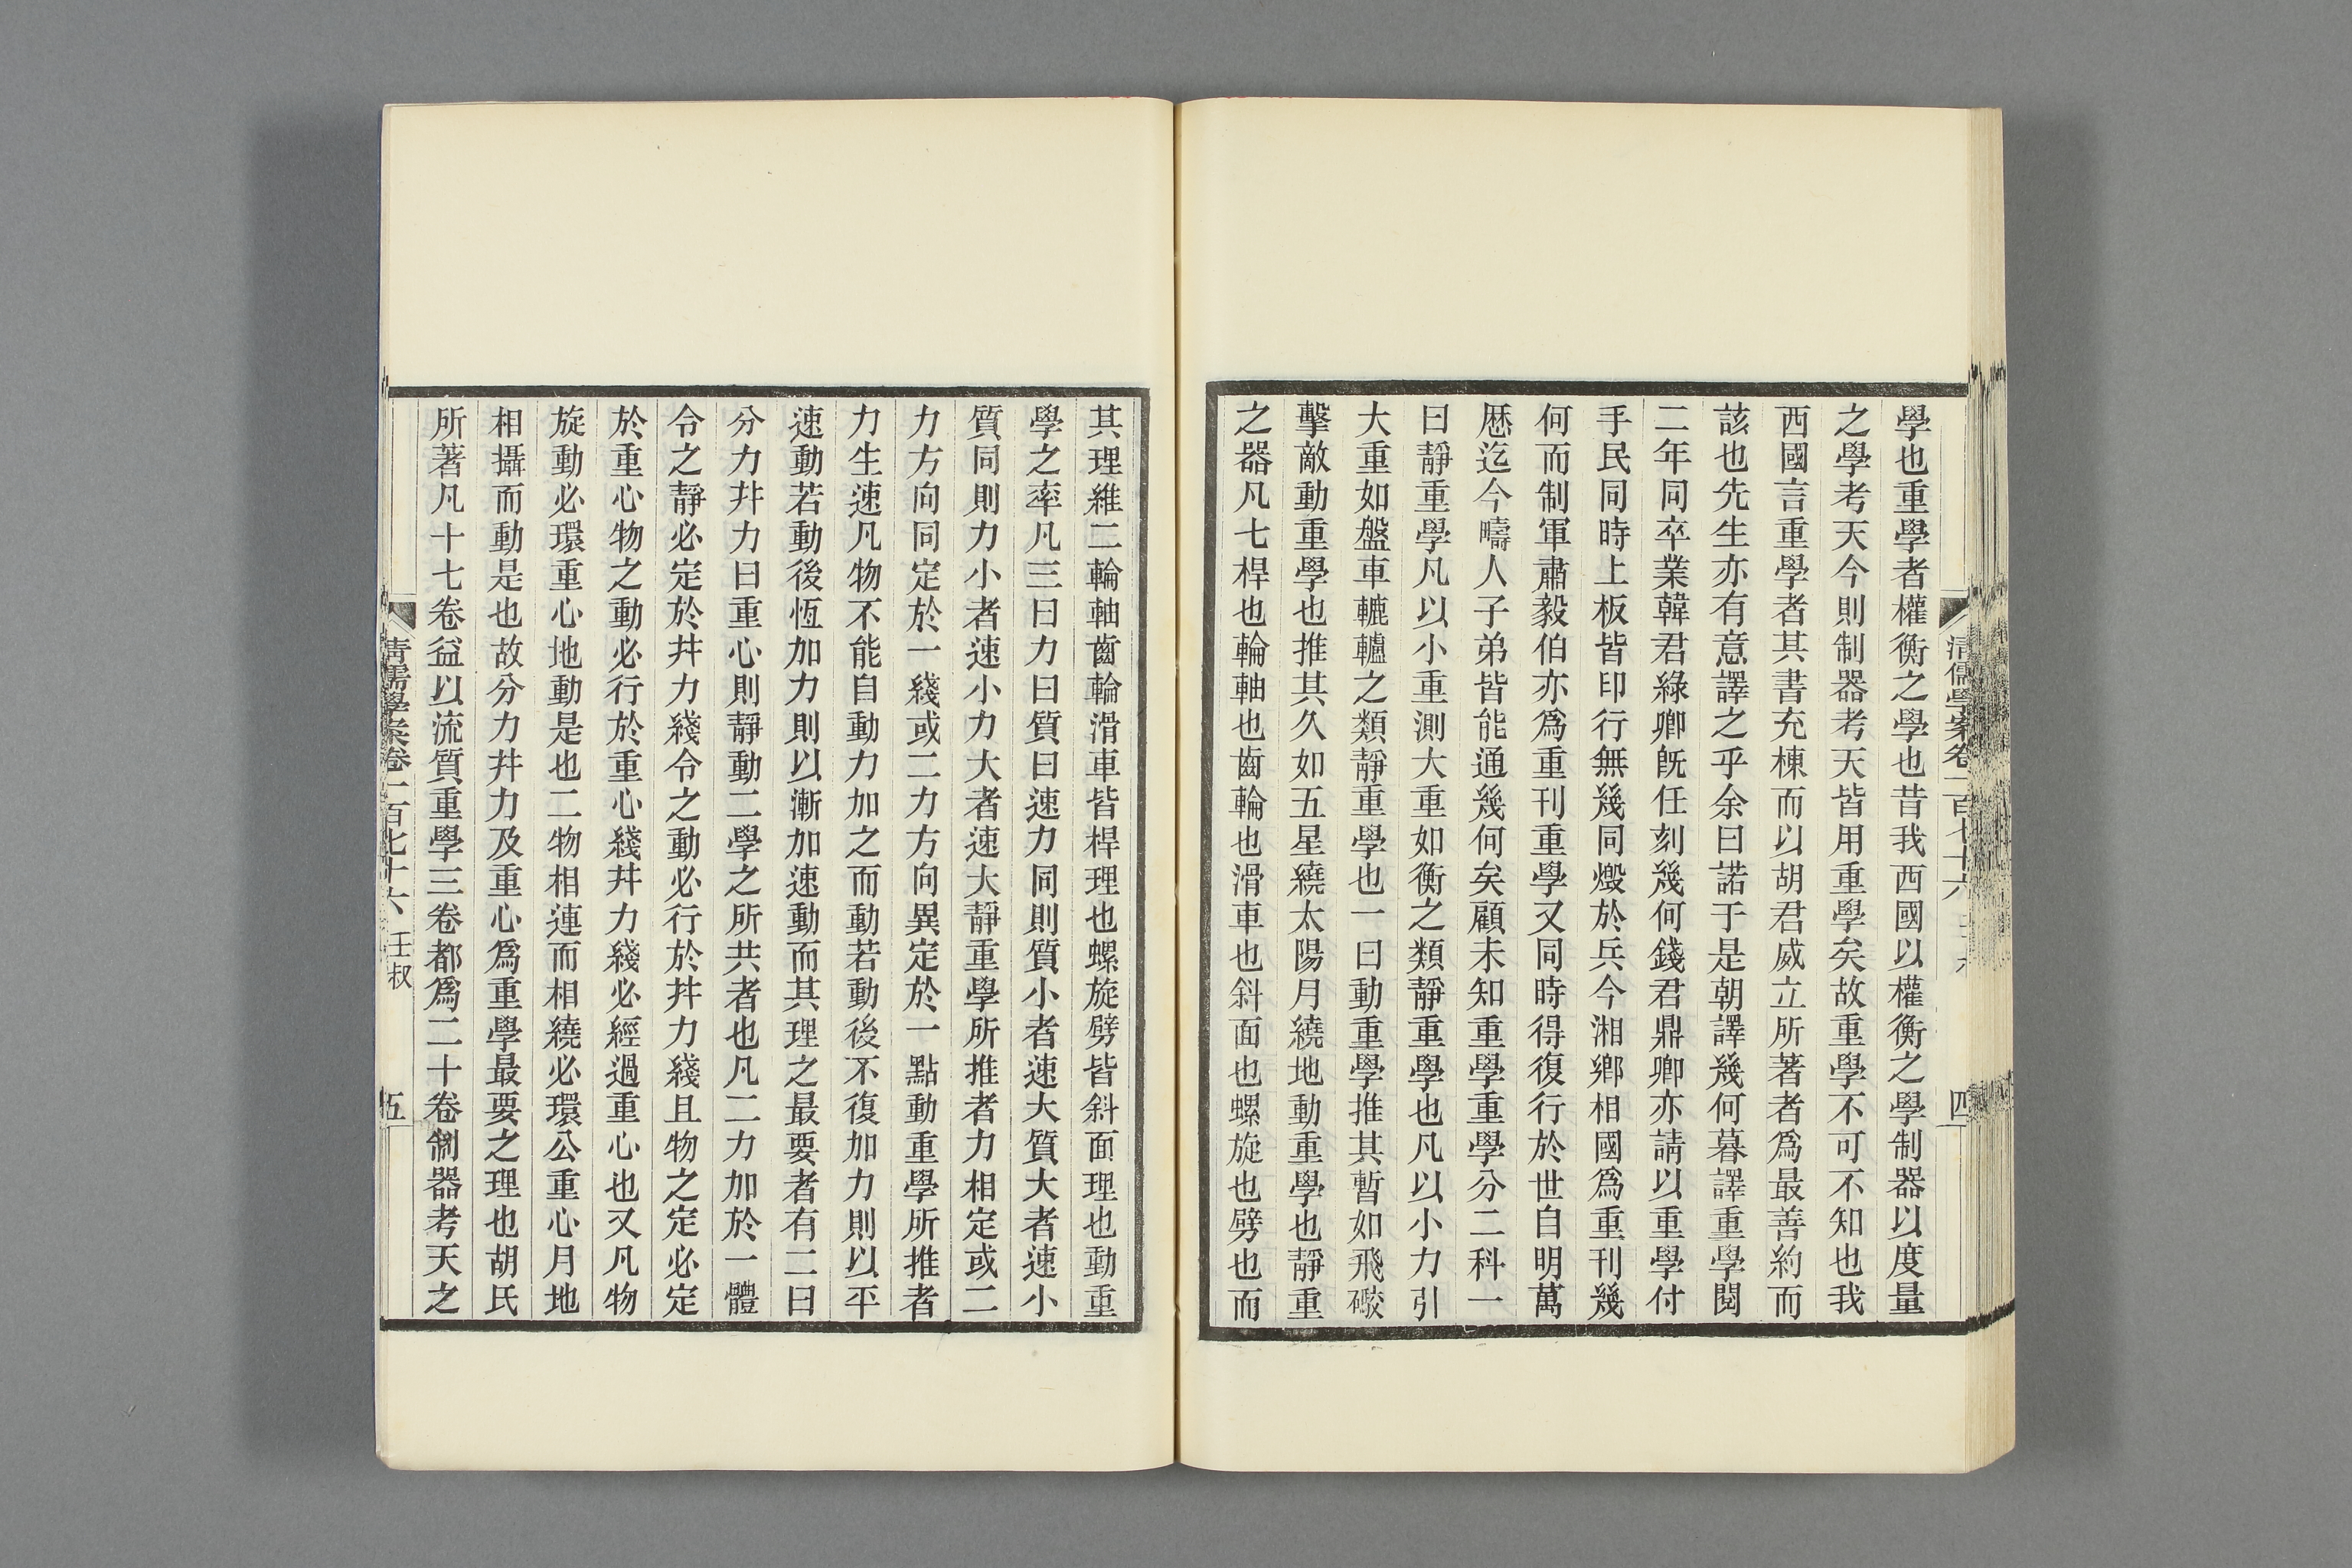 學也重學者權衡之學也昔我西國以權衡之學制器以度量
之學考天今則制器考天皆用重學矣故重學不可不知也我
西國言重學者其書充棟而以胡君威立所著者爲最善約而
該也先生亦有意譯之乎余曰諾于是朝譯幾何暮譯重學閱
二年同卒業韓君綠卿旣任刻幾何錢君鼎卿亦請以重學付
手民同時上板皆印行無幾同燬於兵今湘鄉相國爲重刊幾
何而制軍肅毅伯亦爲重刊重學又同時得復行於世自明萬
厯迄今疇人子弟皆能通幾何矣顧未知重學重學分二科一
曰靜重學凡以小重測大重如衡之類靜重學也凡以小力引
大重如盤車轆轤之類靜重學也一曰動重學推其暫如飛礮
擊敵動重學也推其久如五星繞太陽月繞地動重學也靜重
之器凡七桿也輪軸也齒輪也滑車也斜面也螺旋也劈也而
清儒學案卷一百七十六
四
其理維二輪軸齒輪滑車皆桿理也螺旋劈皆斜面理也動重
學之率凡三曰力曰質曰速力同則質小者速大質大者速小
質同則力小者速小力大者速大靜重學所推者力相定或二
力方向同定於一綫或二力方向異定於一點動重學所推者
力生速凡物不能自動力加之而動若動後不復加力則以平
速動若動後恆加力則以漸加速動而其理之最要者有二曰
分力幷力曰重心則靜動二學之所共者也凡二力加於一體
令之靜必定於幷力綫令之動必行於幷力綫且物之定必定
於重心物之動必行於重心綫幷力綫必經過重心也又凡物
旋動必環重心地動是也二物相連而相繞必環公重心月地
相攝而動是也故分力幷力及重心爲重學最要之理也胡氏
所著凡十七卷益以流質重學三卷都爲二十卷制器考天之
清儒學案卷一百七十六 壬叔
五